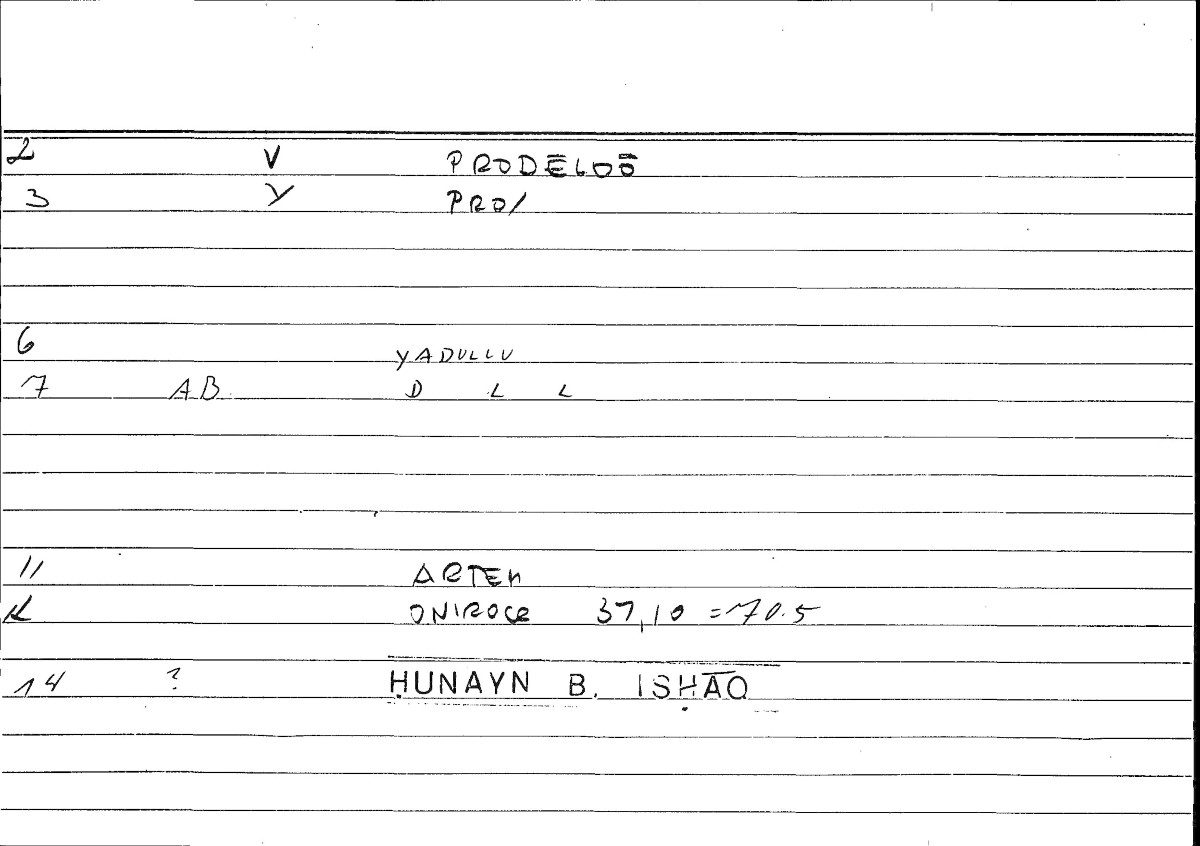 2 V PRODĒLOŌ
3 Y PRO/
6 YADULLU
7 AB D L L
11 ARTEM
12 ONIROCR 37,10 = 70.5
14 ? ḤUNAYN B. ISḤĀQ